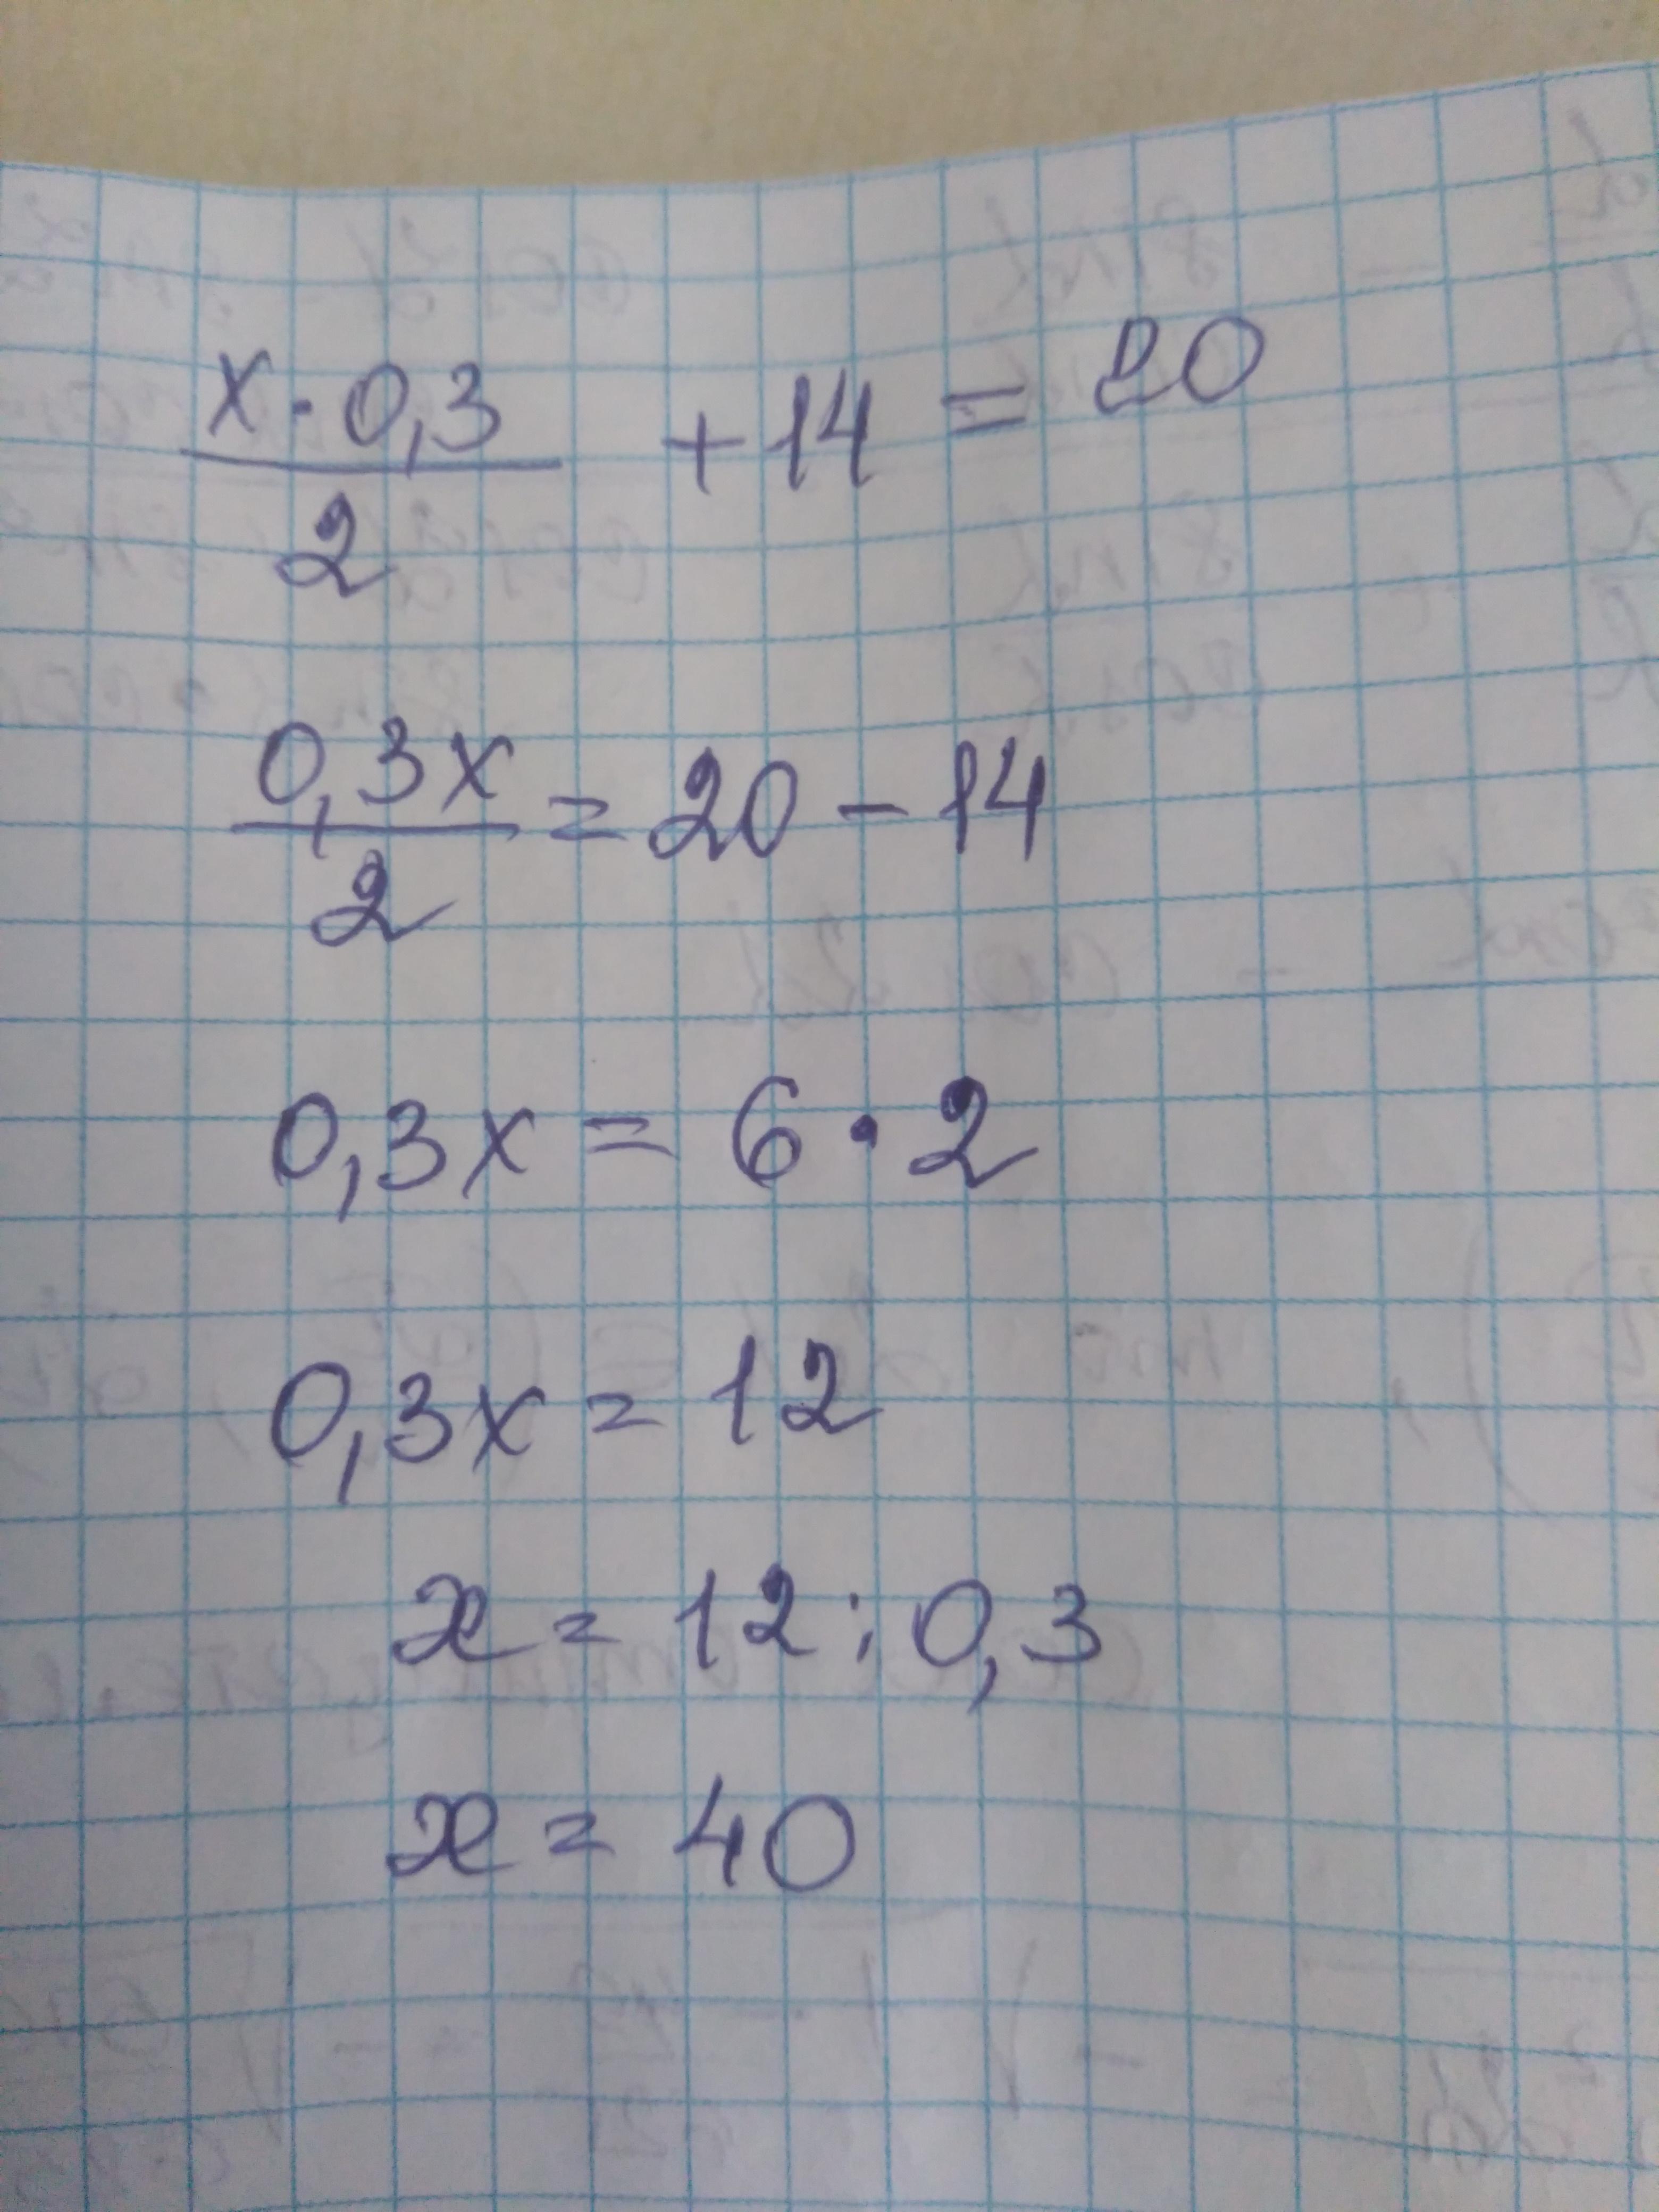 x · 0,3 / 2 + 14 = 20
0,3x / 2 = 20 - 14
0,3x = 6 · 2
0,3x = 12
x = 12 : 0,3
x = 40